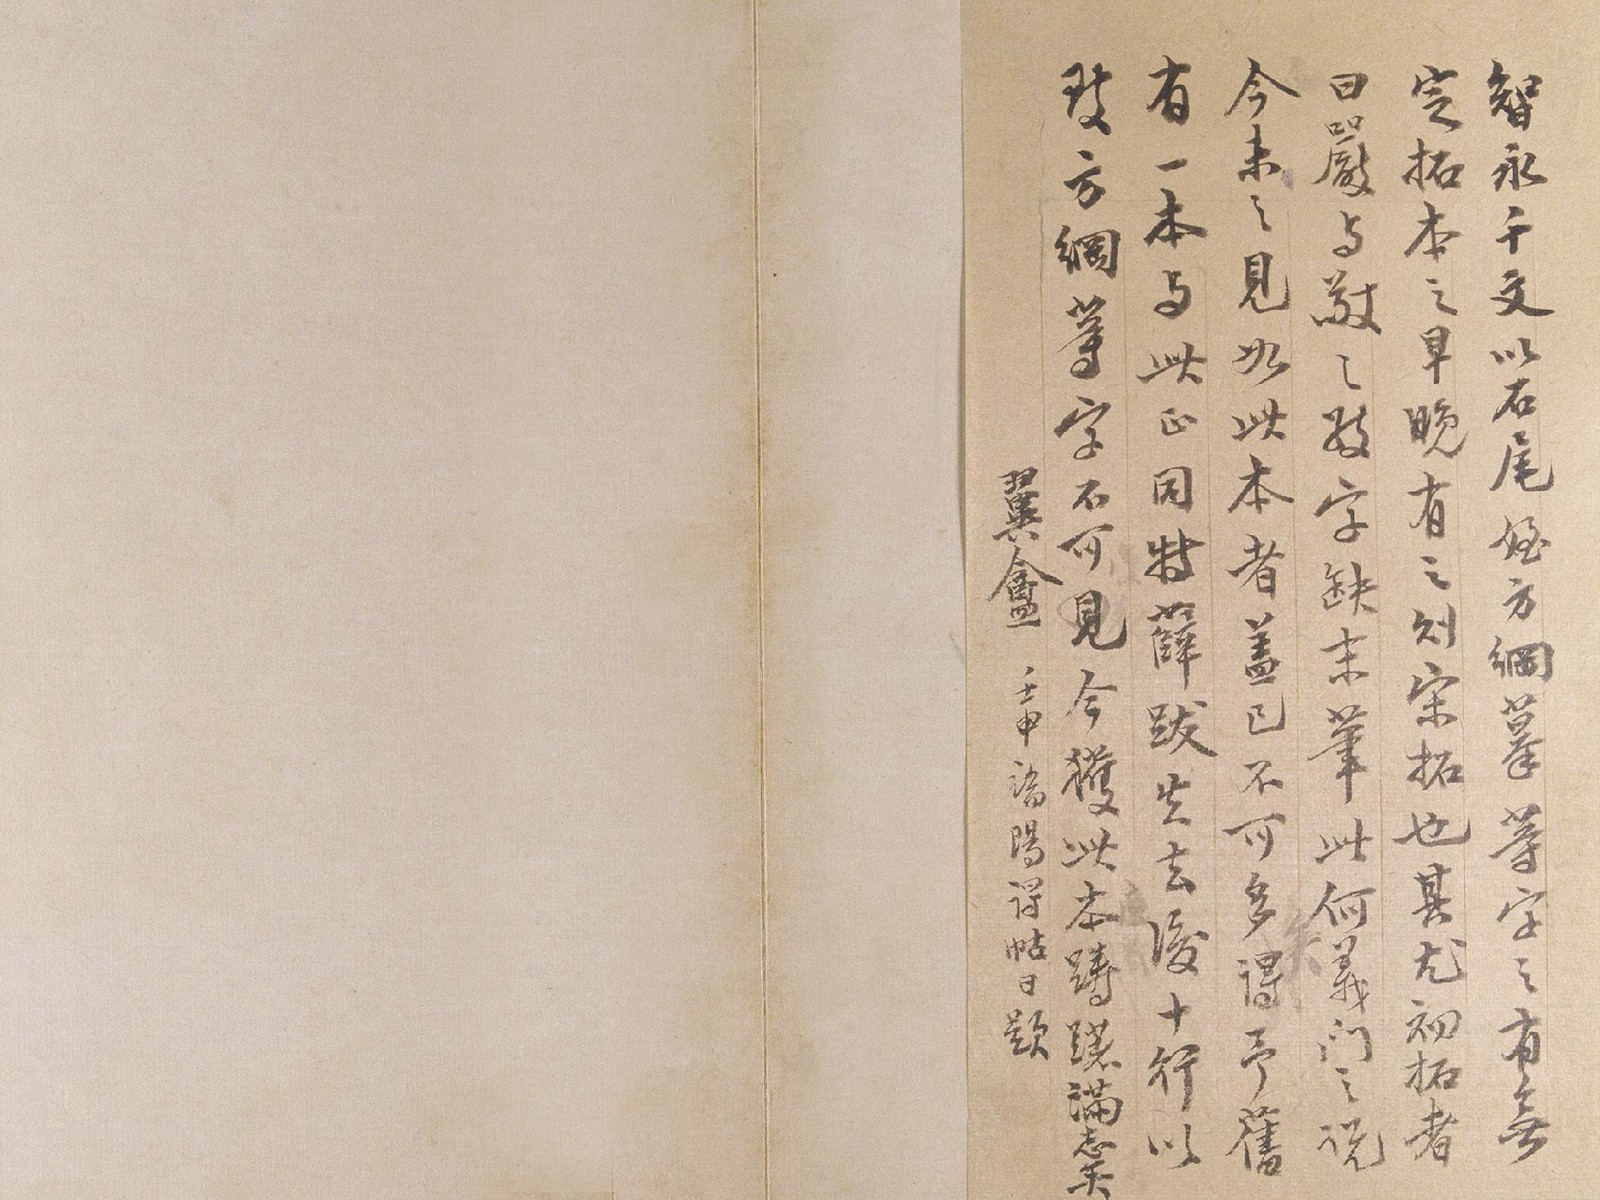 智永千文以石尾侄方綱摹等字之有無
定拓本之早晚有之则宋拓也其尤初拓者
曰嚴与敬之數字缺末筆此何義门之说
今未之見如此本者盖已不可多得予舊
有一本与此正同特薛跋失去後十行以
致方綱等字不可見今獲此本躊躇滿志矣
翼盦 壬申端陽得帖日題